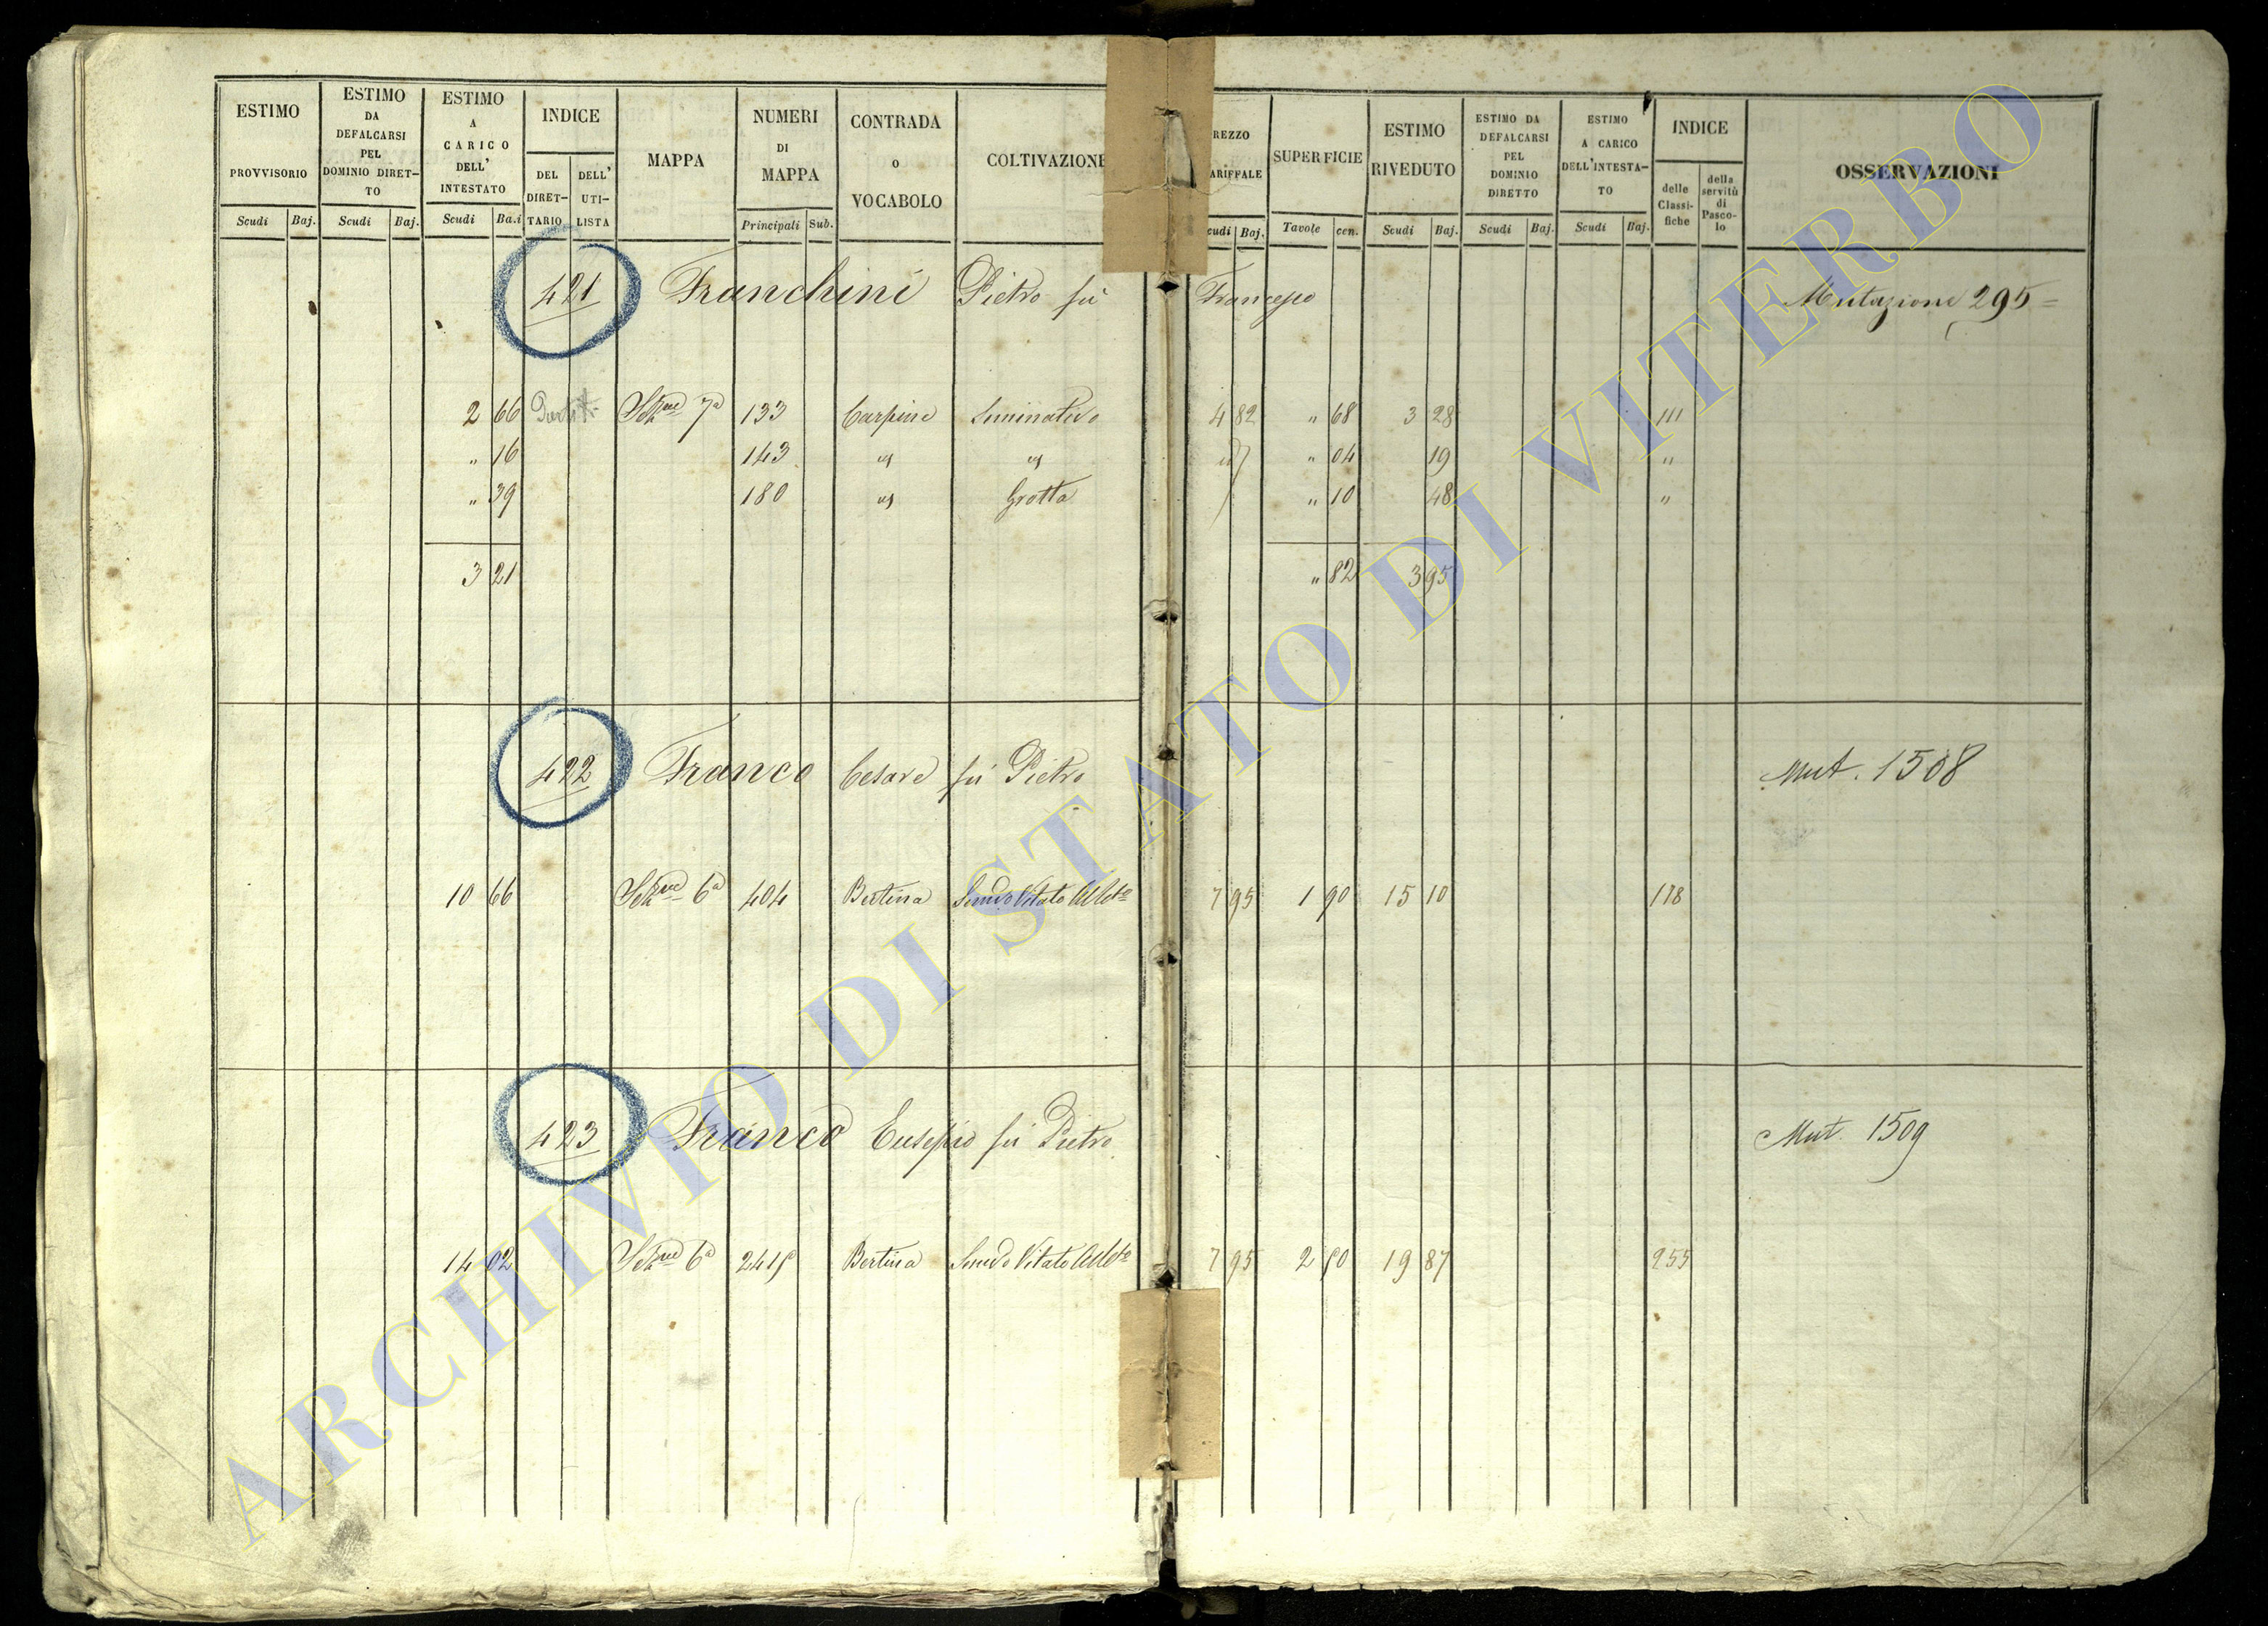 ESTIMO PROVVISORIO
Scudi Baj.
ESTIMO DA DEFALCARSI PEL DOMINIO DIRET-TO
Scudi Baj.
ESTIMO A CARICO DELL' INTESTATO
Scudi Ba.i
INDICE
DEL DIRET-TARIO
DELL' UTI-LISTA
MAPPA
NUMERI DI MAPPA
Principali Sub.
CONTRADA o VOCABOLO
COLTIVAZIONE
REZZO ARIFFALE
cudi Baj.
SUPERFICIE
Tavole cen.
ESTIMO RIVEDUTO
Scudi Baj.
ESTIMO DA DEFALCARSI PEL DOMINIO DIRETTO
Scudi Baj.
ESTIMO A CARICO DELL'INTESTA-TO
Scudi Baj.
INDICE
delle Classi-fiche
della servitù di Pasco-lo
OSSERVAZIONI
421 Franchini Pietro fu Francesco Mutazione 295=
2 66 Sez.ne 7a 133 Carpine Seminativo 4 82 " 68 3 28 111
" 16 143 " " " 04 19 "
" 39 180 " Grotta " 10 48 "
3 21 " 82 3 95
422 Franco Cesare fu Pietro Mut. 1508
10 66 Sez.ne 6a 404 Bertina Semvo Vitato 7 95 1 90 15 10 178
423 Franco Eusepio fu Pietro Mut. 1509
14 02 Sez.ne 6a Bertina Semvo Vitato 7 95 2 50 19 87 255
ARCHIVIO DI STATO DI VITERBO